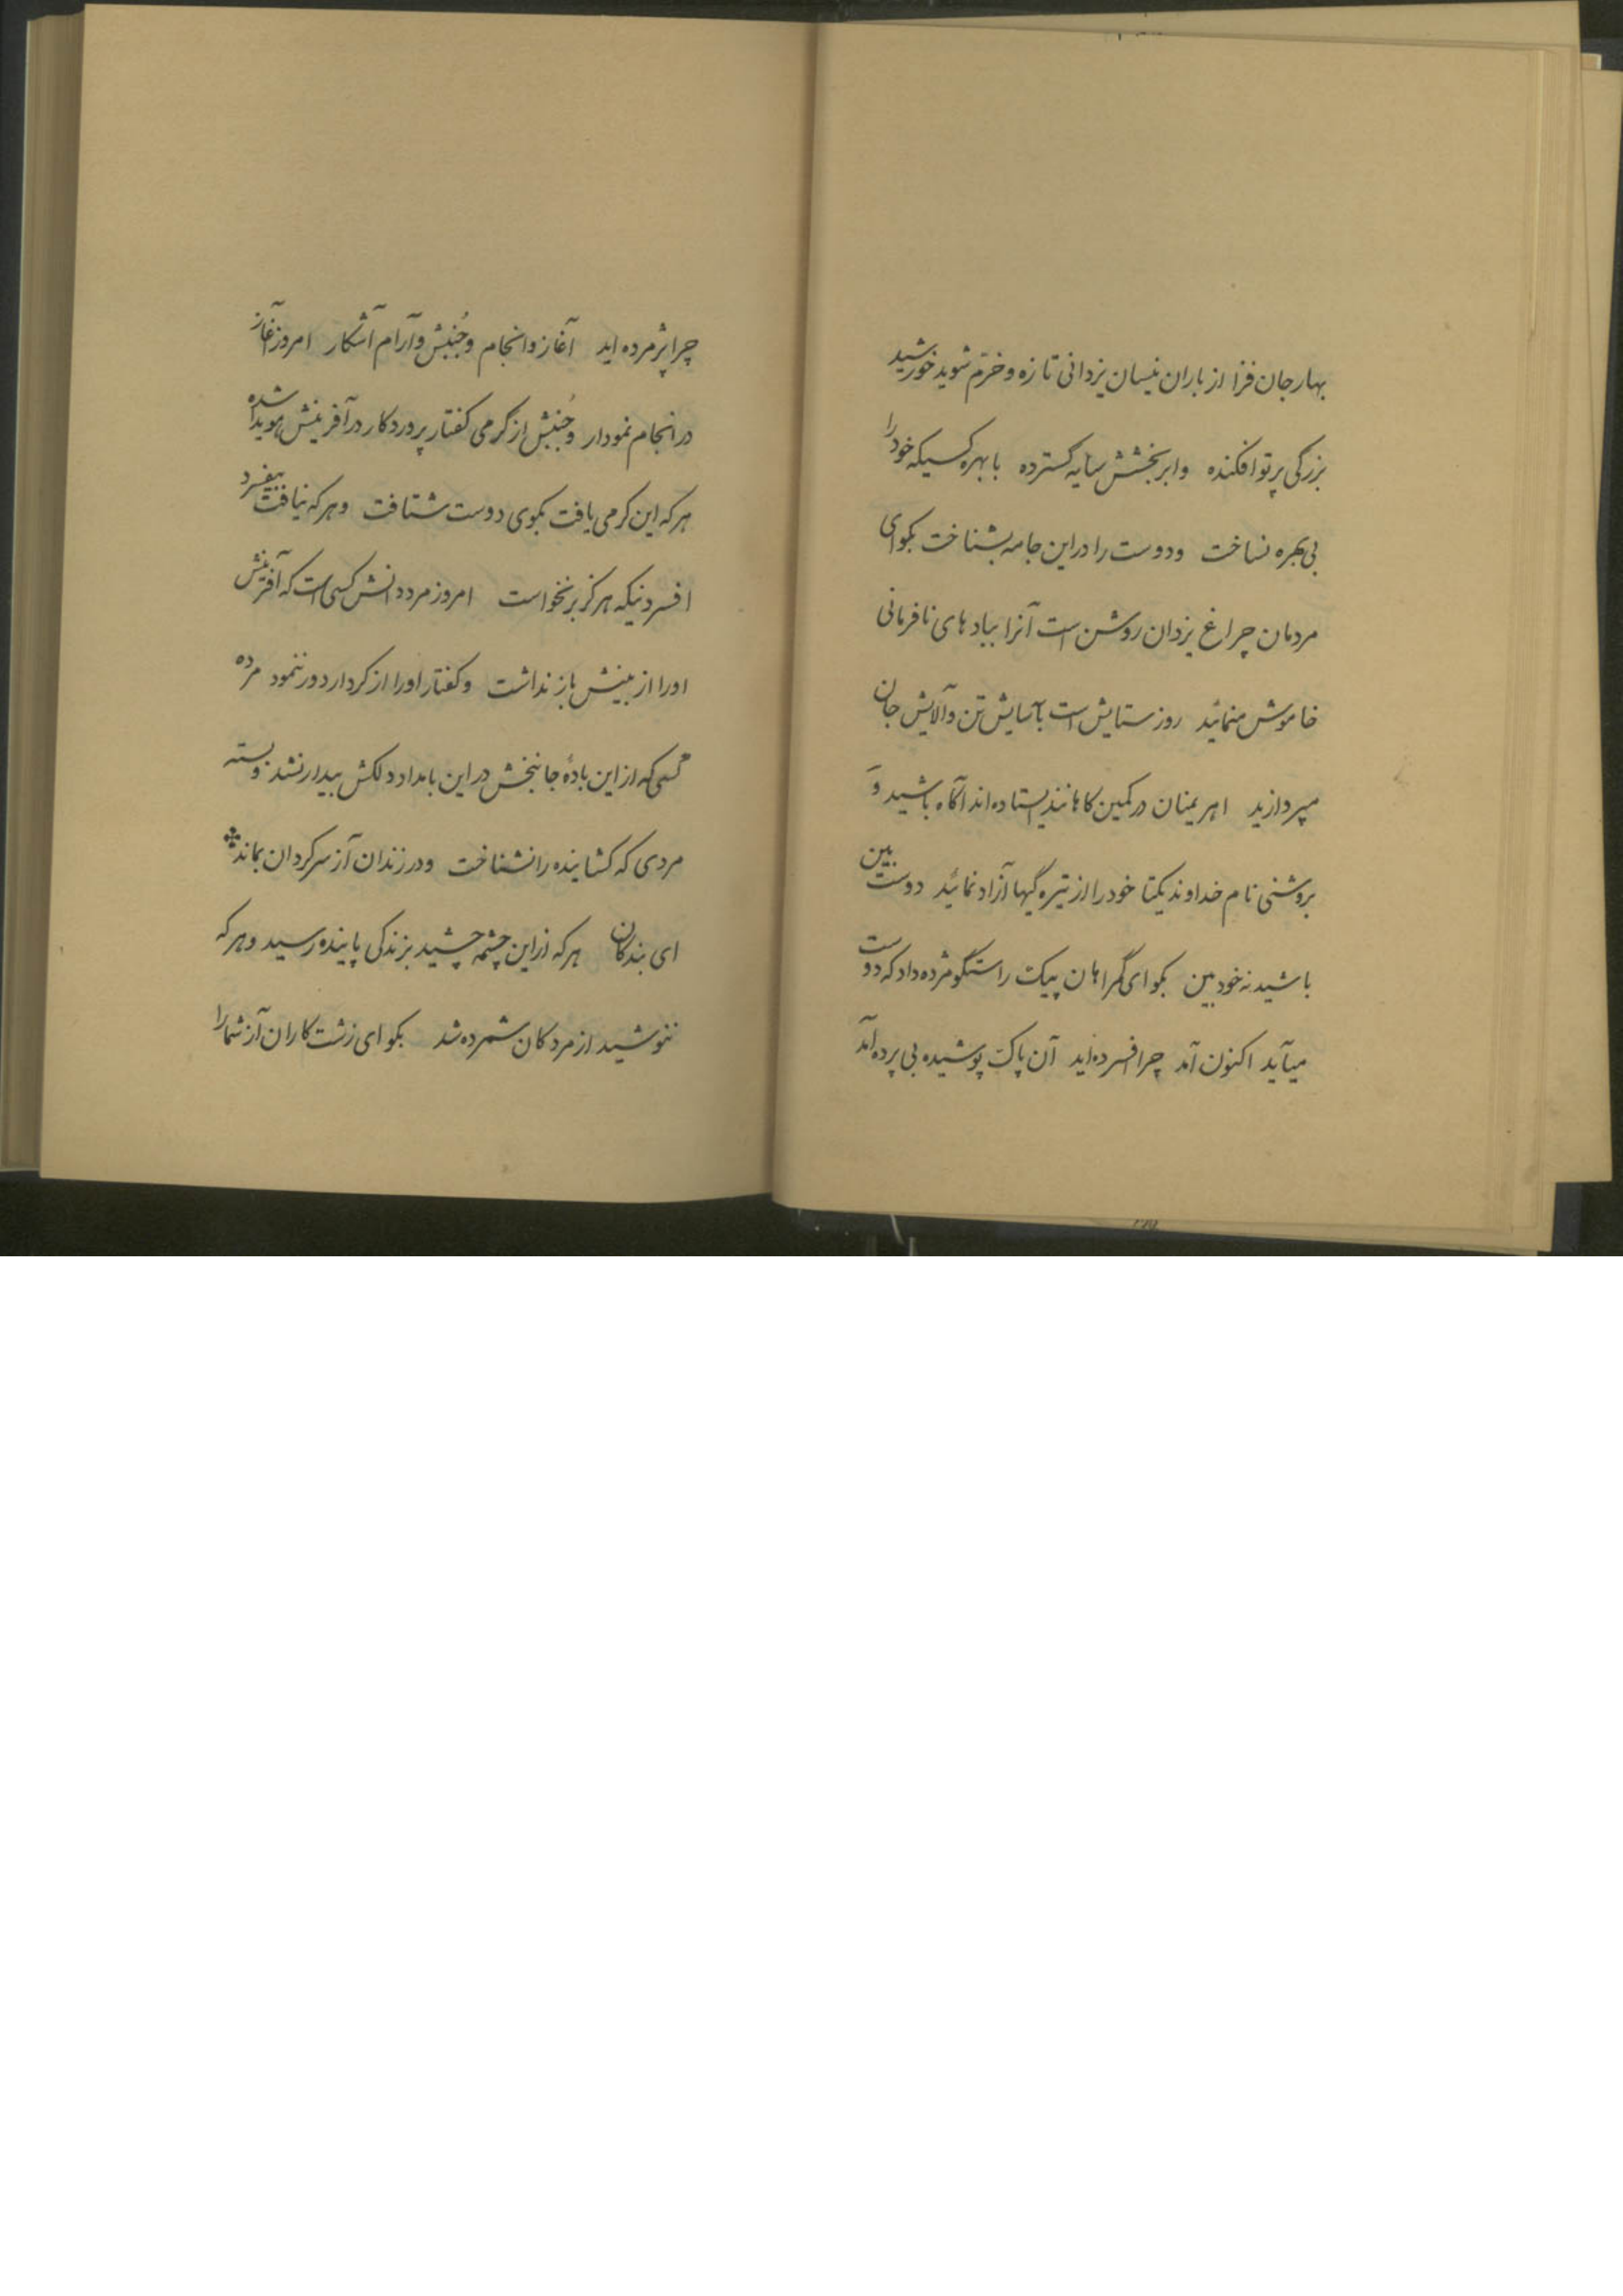 بهار جان فزا از باران نیسان یزدانی تازه و خرّم شوید خورشید
بزرگی پرتو افکنده و ابر بخشش سایه گسترده با بهره کسیکه خود را
بی بهره نساخت و دوست را در این جامه بشناخت بگو ای
مردمان چراغ یزدان روشن است آنرا ببادهای نافرمانی
خاموش منمائید روز ستایش است بآسایش تن و آلایش جان
مپردازید اهریمنان در کمین گاهانند ایستاده اند آگاه باشید و
بروشنی نام خداوند یکتا خود را از تیره گیها آزاد نمائید دوست بین
باشید نه خود بین بگو ای گمراهان پیک راستگو مژده داد که دوست
میآید اکنون آمد چرا افسرده اید آن پاک پوشیده بی پرده آمد
چرا پژمرده اید آغاز و انجام و جُنبش و آرام آشکار امروز آغاز
در انجام نمودار و جُنبش از گرمی گفتار پروردگار در آفرینش هویدا شده
هر که این گرمی یافت بکوی دوست شتافت و هر که نیافت بیفسرد
افسردنیکه هرگز برنخواست امروز مرد دانش کسی است که آفرینش
اورا از بینش باز نداشت و گفتار اورا از کردار دور ننمود مرده
کسی که از این بادهٔ جانبخش در این بامداد دلکش بیدار نشد و بسته
مردی که گشاینده را نشناخت و در زندان آز سرگردان بماند
ای بندگان هر که از این چشمه چشید بزندگی پاینده رسید و هر که
ننوشید از مردگان شمرده شد بگو ای زشت کاران آز شما را